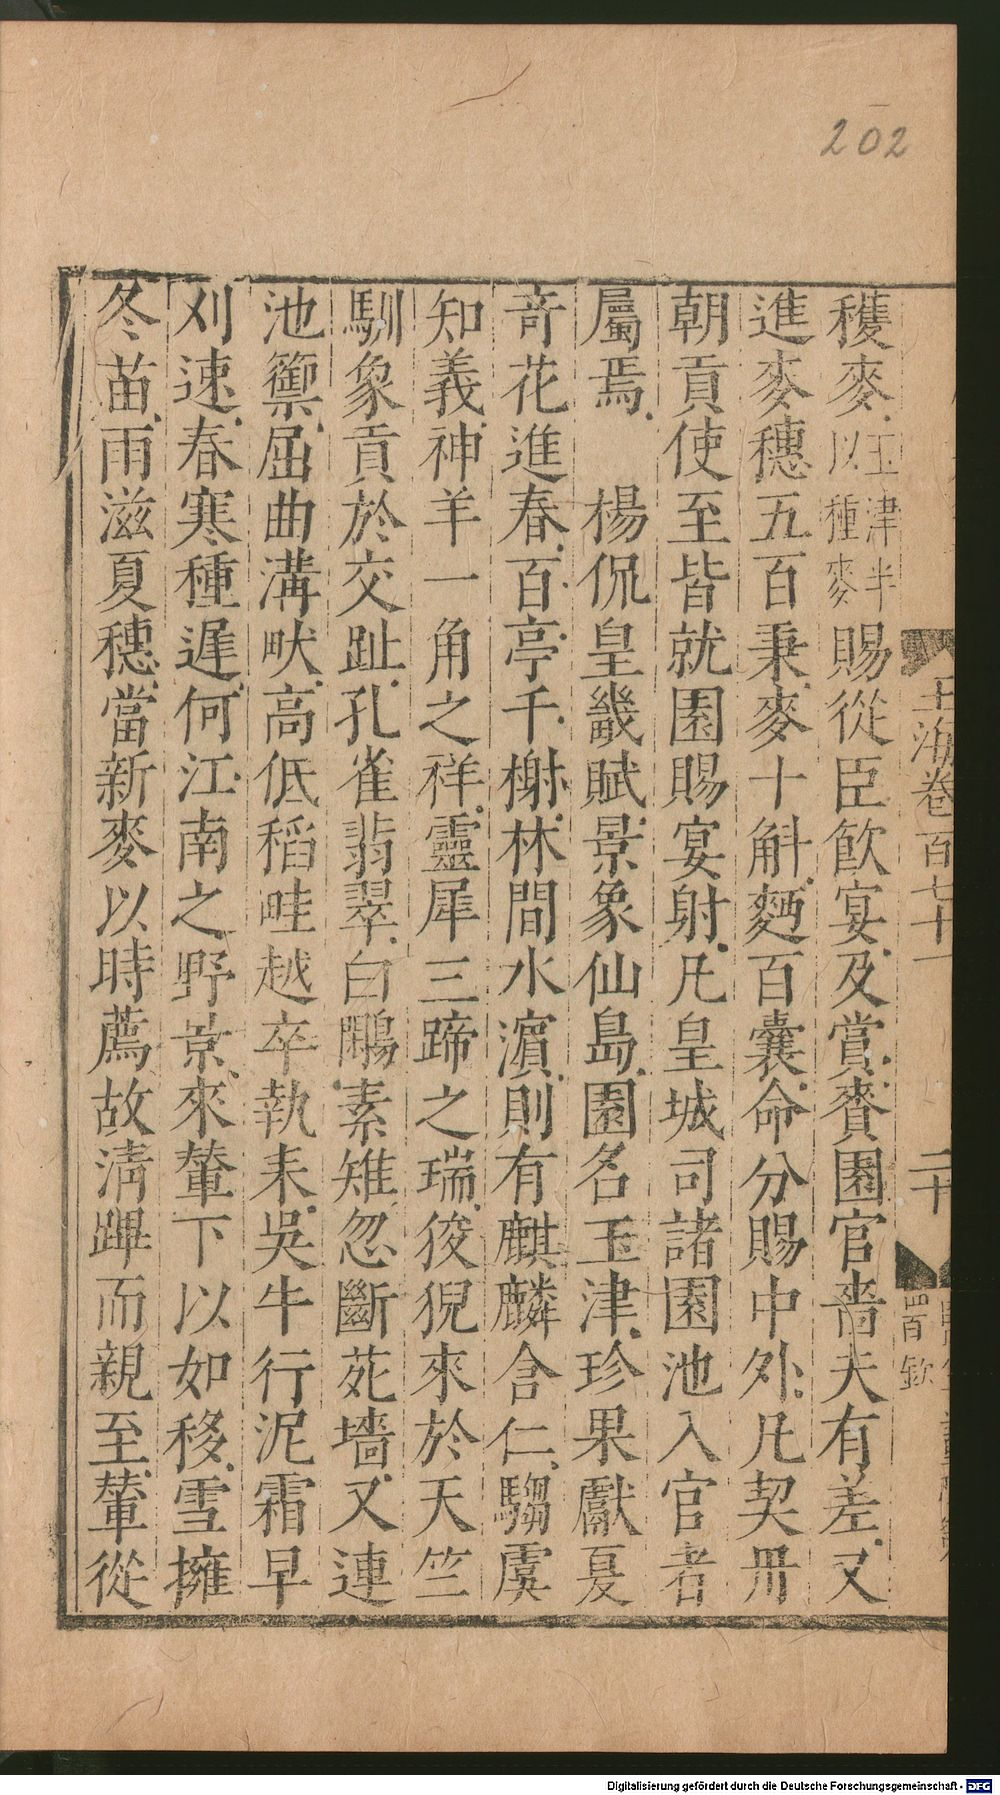 202
玉海卷百七十一 二十
穫麥玉津半以種麥賜從臣飲宴及賞賚園官嗇夫有差又
進麥穗五百秉麥十斛麪百囊命分賜中外凡契丹
朝貢使至皆就園賜宴射凡皇城司諸園池入官者
屬焉 楊侃皇畿賦景象仙島園名玉津珍果獻夏
奇花進春百亭千榭林間水濵則有麒麟含仁騶虞
知義神羊一角之祥靈犀三蹄之瑞狻猊來於天竺
馴象貢於交趾孔雀翡翠白鷴素雉忽斷苑墻又連
池籞屈曲溝畎高低稻畦越卒執耒吳牛行泥霜早
刈速春寒種遲何江南之野景來輦下以如移雪擁
冬苗雨滋夏穗當新麥以時薦故清蹕而親至輦從
Digitalisierung gefördert durch die Deutsche Forschungsgemeinschaft - DFG